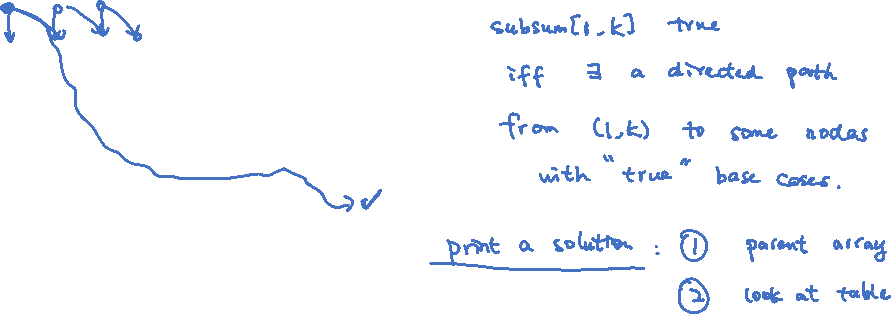 subsum[1,k] true
iff ∃ a directed path
from (1,k) to some nodas
with "true" base cases.
print a solution : ① parent array
② look at table